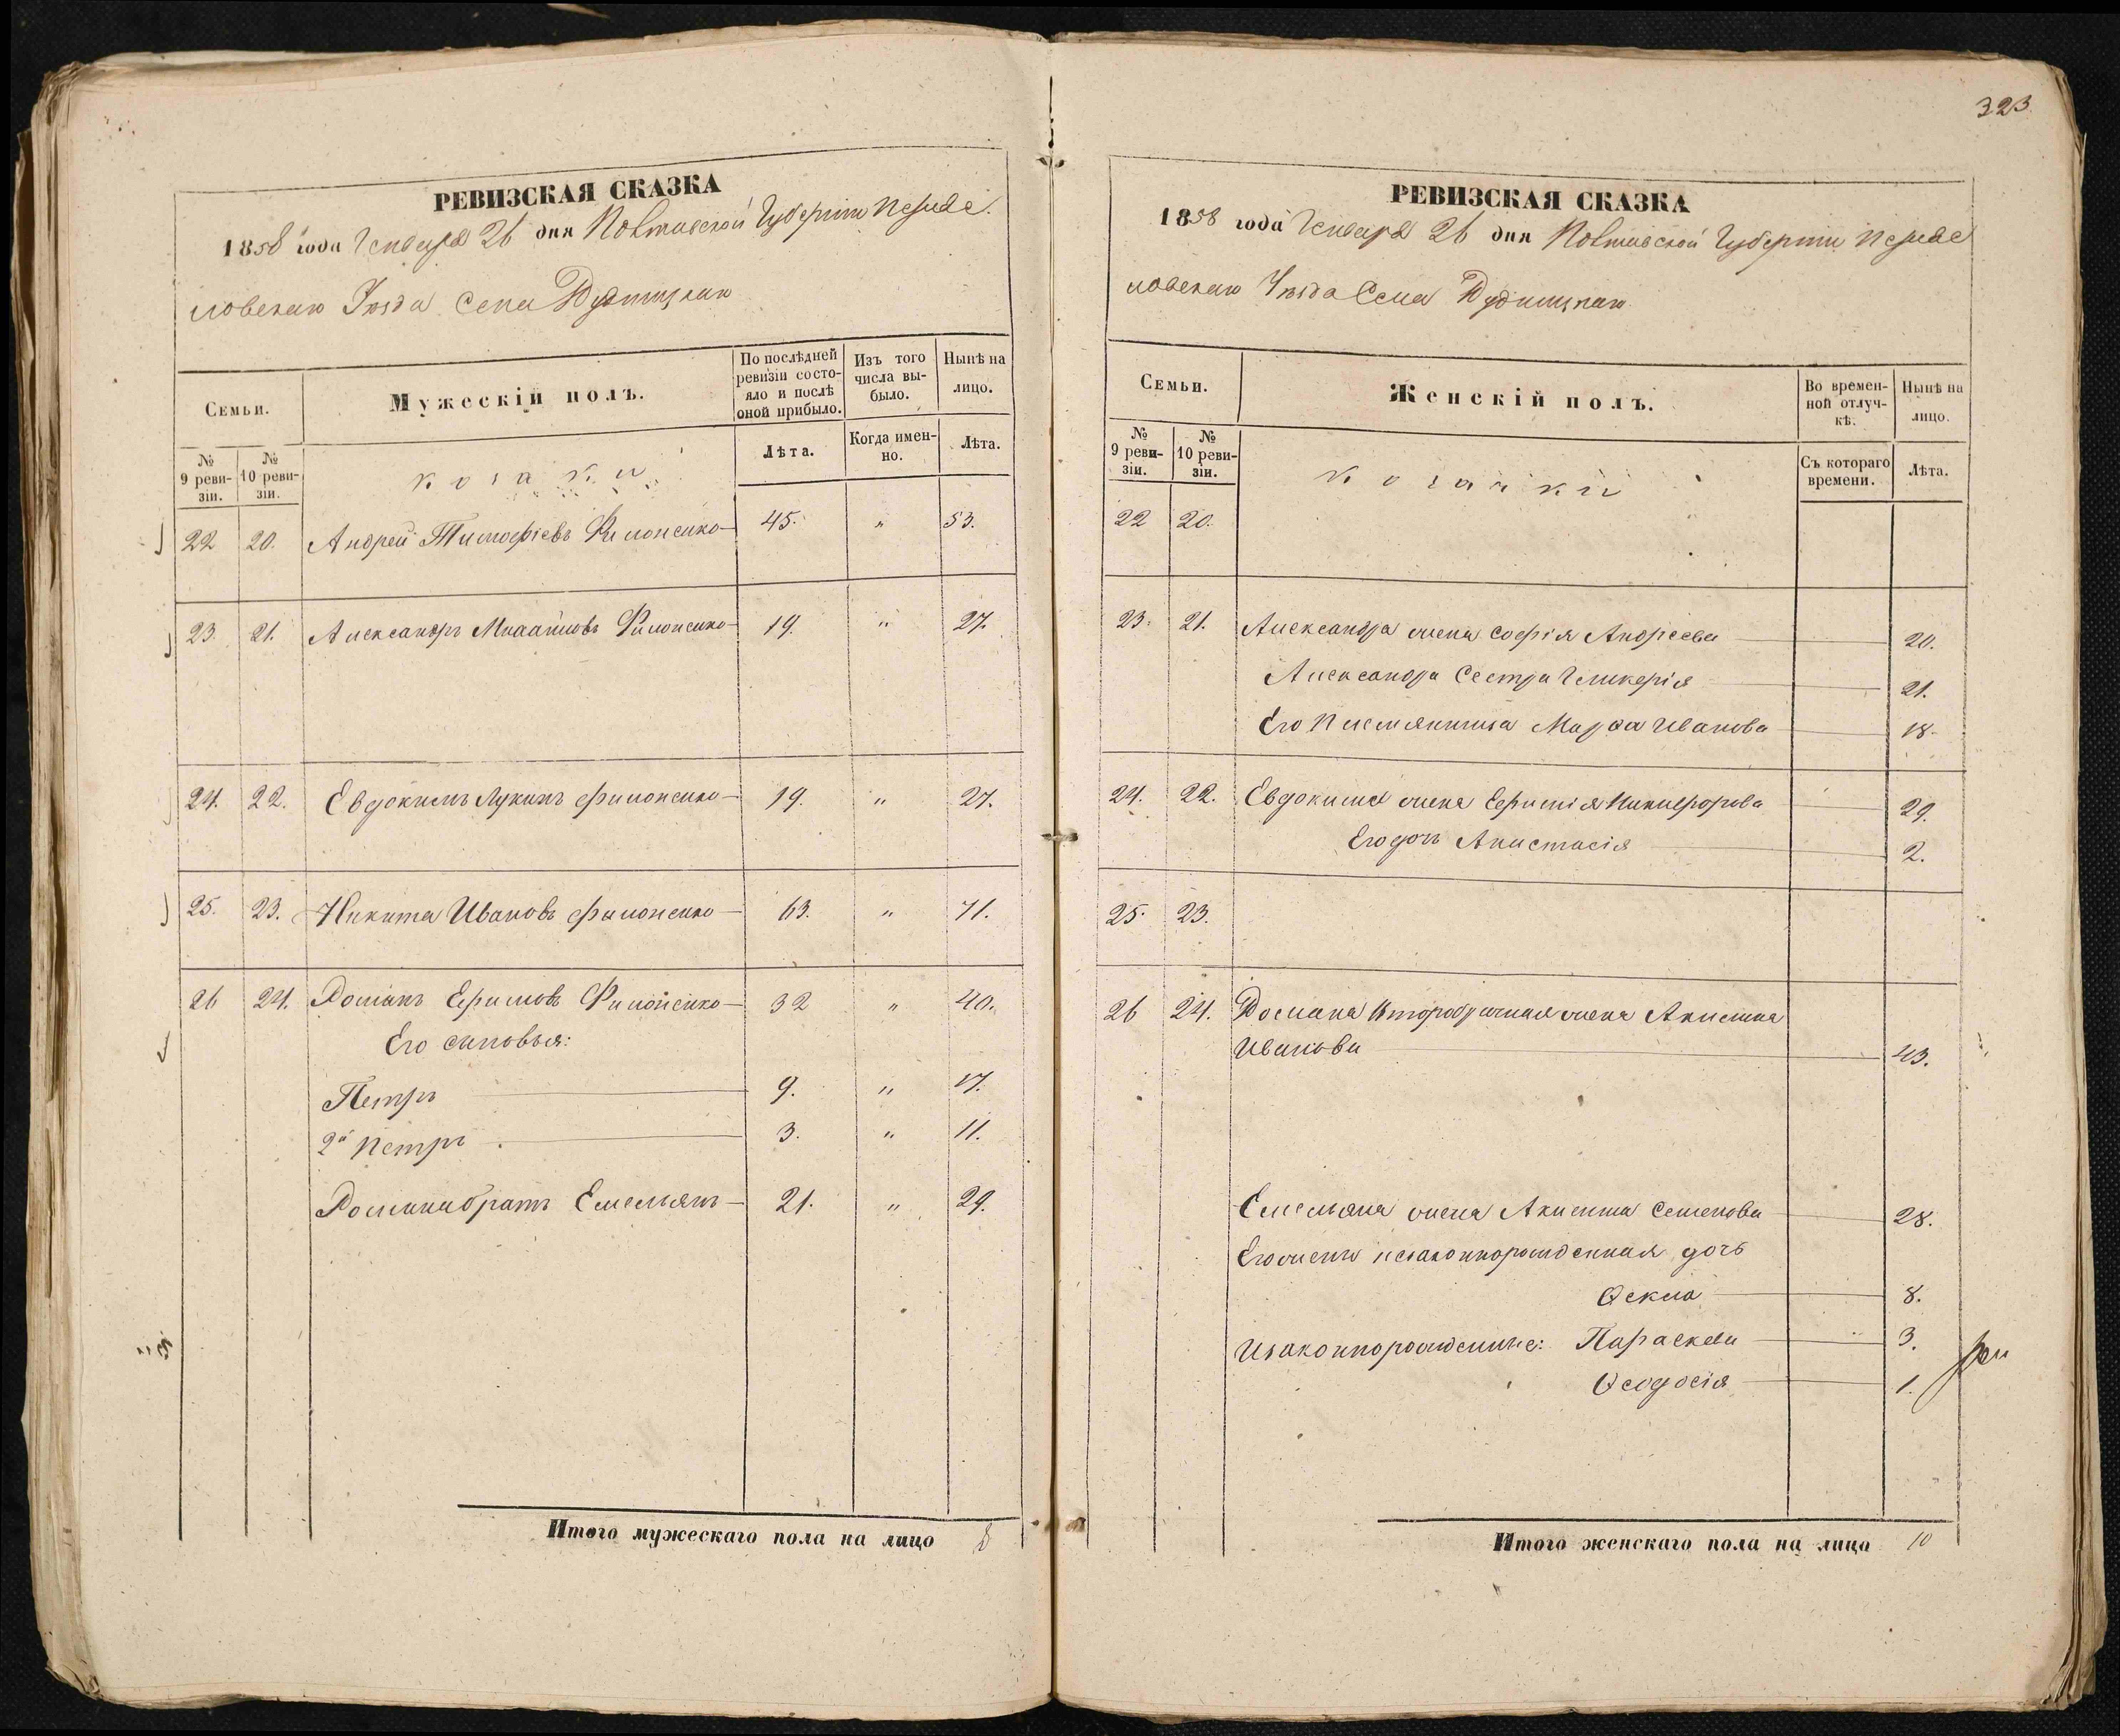 323
РЕВИЗСКАЯ СКАЗКА
1858 года Генваря 26 дня Полтавской Губернiи Переяс-
ловскаго Уѣзда Села
Семьи.
Мужескій полъ.
По послѣдней ревизіи состояло и послѣ оной прибыло.
Изъ того числа выбыло.
Нынѣ на лицо.
№ 9 ревизіи.
№ 10 ревизіи.
Лѣта.
Когда именно.
Лѣта.
козаки
22 20. Андрей Тимофіевъ Филоненко 45. " 53.
23. 21. Александръ Михайловъ Филоненко 19. " 27.
24. 22. Евдокимъ Лукинъ Филоненко 19. " 27.
25. 23. Никита Ивановъ Филоненко 63. " 71.
26 24. Романъ Ефимовъ Филоненко 32 " 40.
Его сыновья:
Петръ 9. " 17.
2й Петръ 3. " 11.
Романа братъ Емельянъ 21. " 29.
Итого мужескаго пола на лицо 8
РЕВИЗСКАЯ СКАЗКА
1858 года Генваря 26 дня Полтавской Губерніи Переяс
ловскаго Уѣзда Села
Семьи.
Женскій полъ.
Во временной отлучкѣ.
Нынѣ на лицо.
№ 9 ревизіи.
№ 10 ревизіи.
Съ котораго времени.
Лѣта.
козачки
22 20.
23. 21. Александра жена Софія Андреева 20.
Александра Сестра Гликерія 21.
Его Племянница Марфа Иванова 18.
24. 22. Евдокима жена Ефимія Никифорова 29.
Его дочь Анастасія 2.
25. 23.
26 24. Романа Второбрачная жена Акилина
Иванова 43.
Емельяна жена Семенова 28.
Его жены незаконнорожденная дочь
Ѳекла 8.
Изаконнорожденные: Параскева 3.
Ѳеодосія 1.
Итого женскаго пола на лицо 10